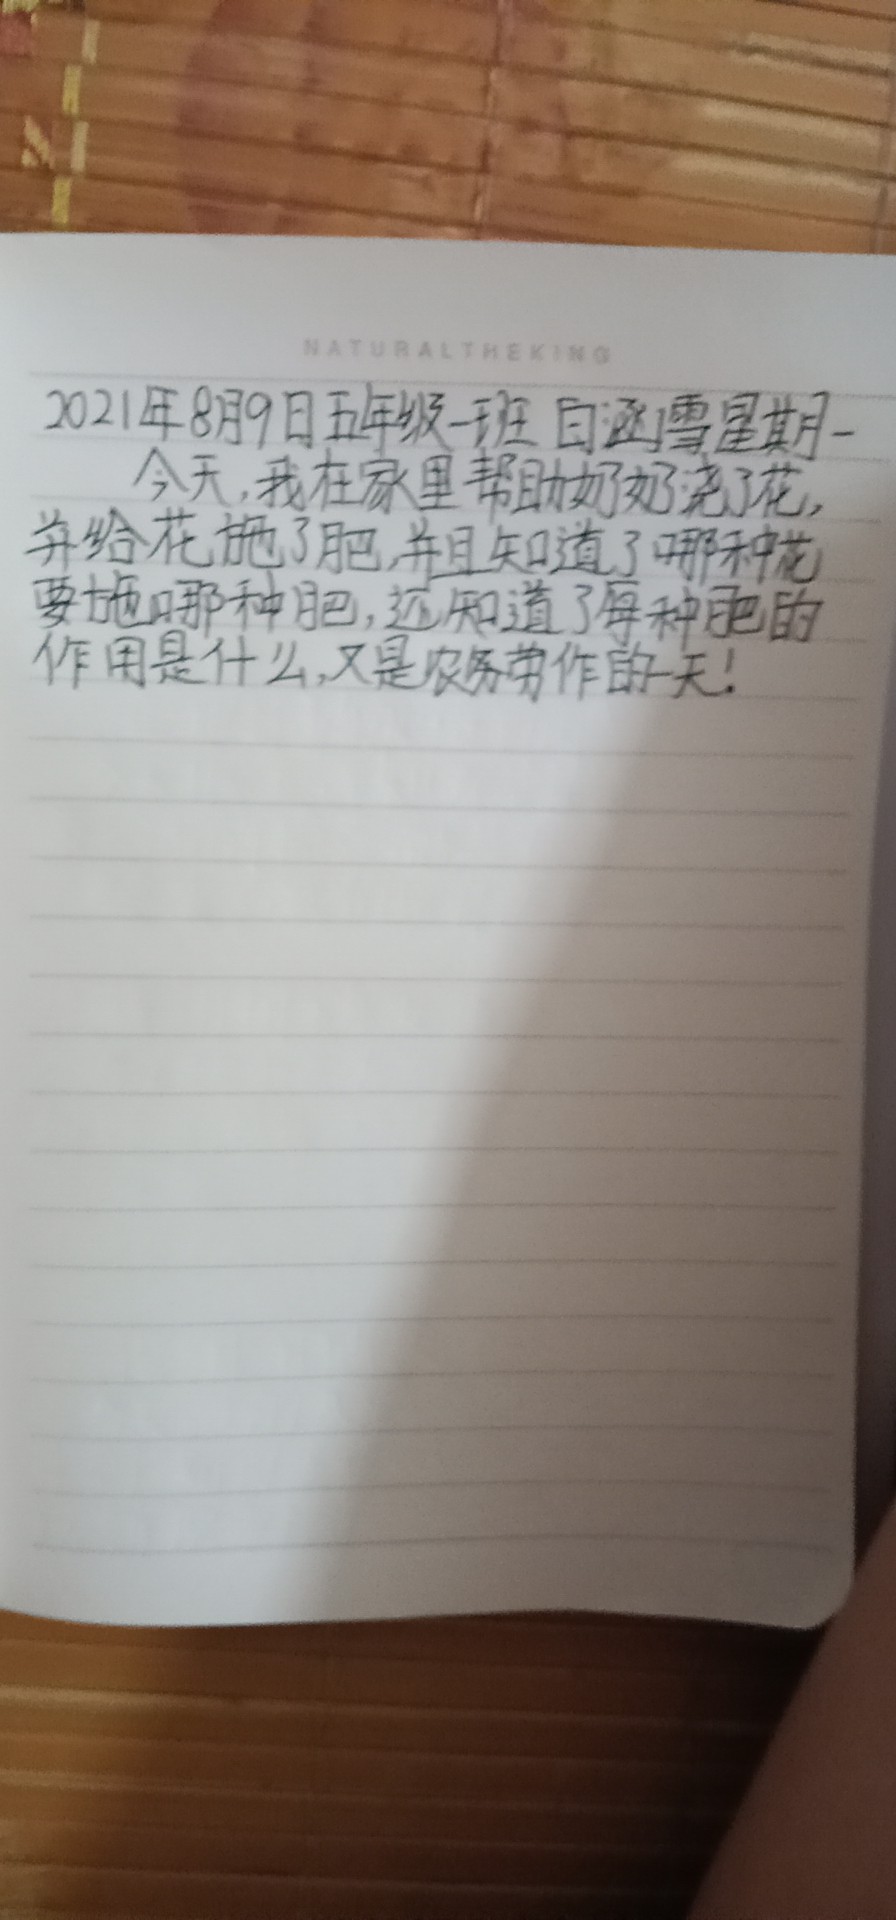 NATURALTHEKING
2021年8月9日五年级一班 白涵雪星期一
今天,我在家里帮助奶奶浇了花,
并给花施了肥,并且知道了哪种花
要施哪种肥,还知道了每种肥的
作用是什么,又是农务劳作的一天!